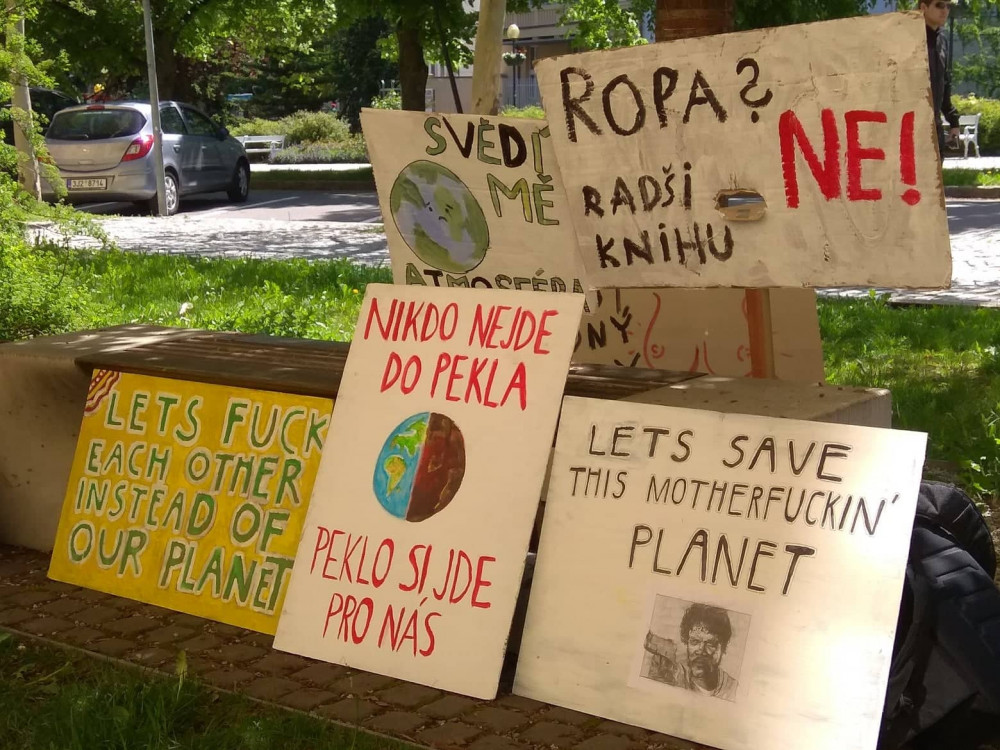 SVĚDÍ
MĚ
ATMOSFÉRA
ROPA?
NE!
RADŠi
KNiHU
NIKDO NEJDE
DO PEKLA
PEKLO SI JDE
PRO NÁS
LETS FUCK
EACH OTHER
INSTEAD OF
OUR PLANET
LETS SAVE
THIS MOTHERFUCKIN'
PLANET